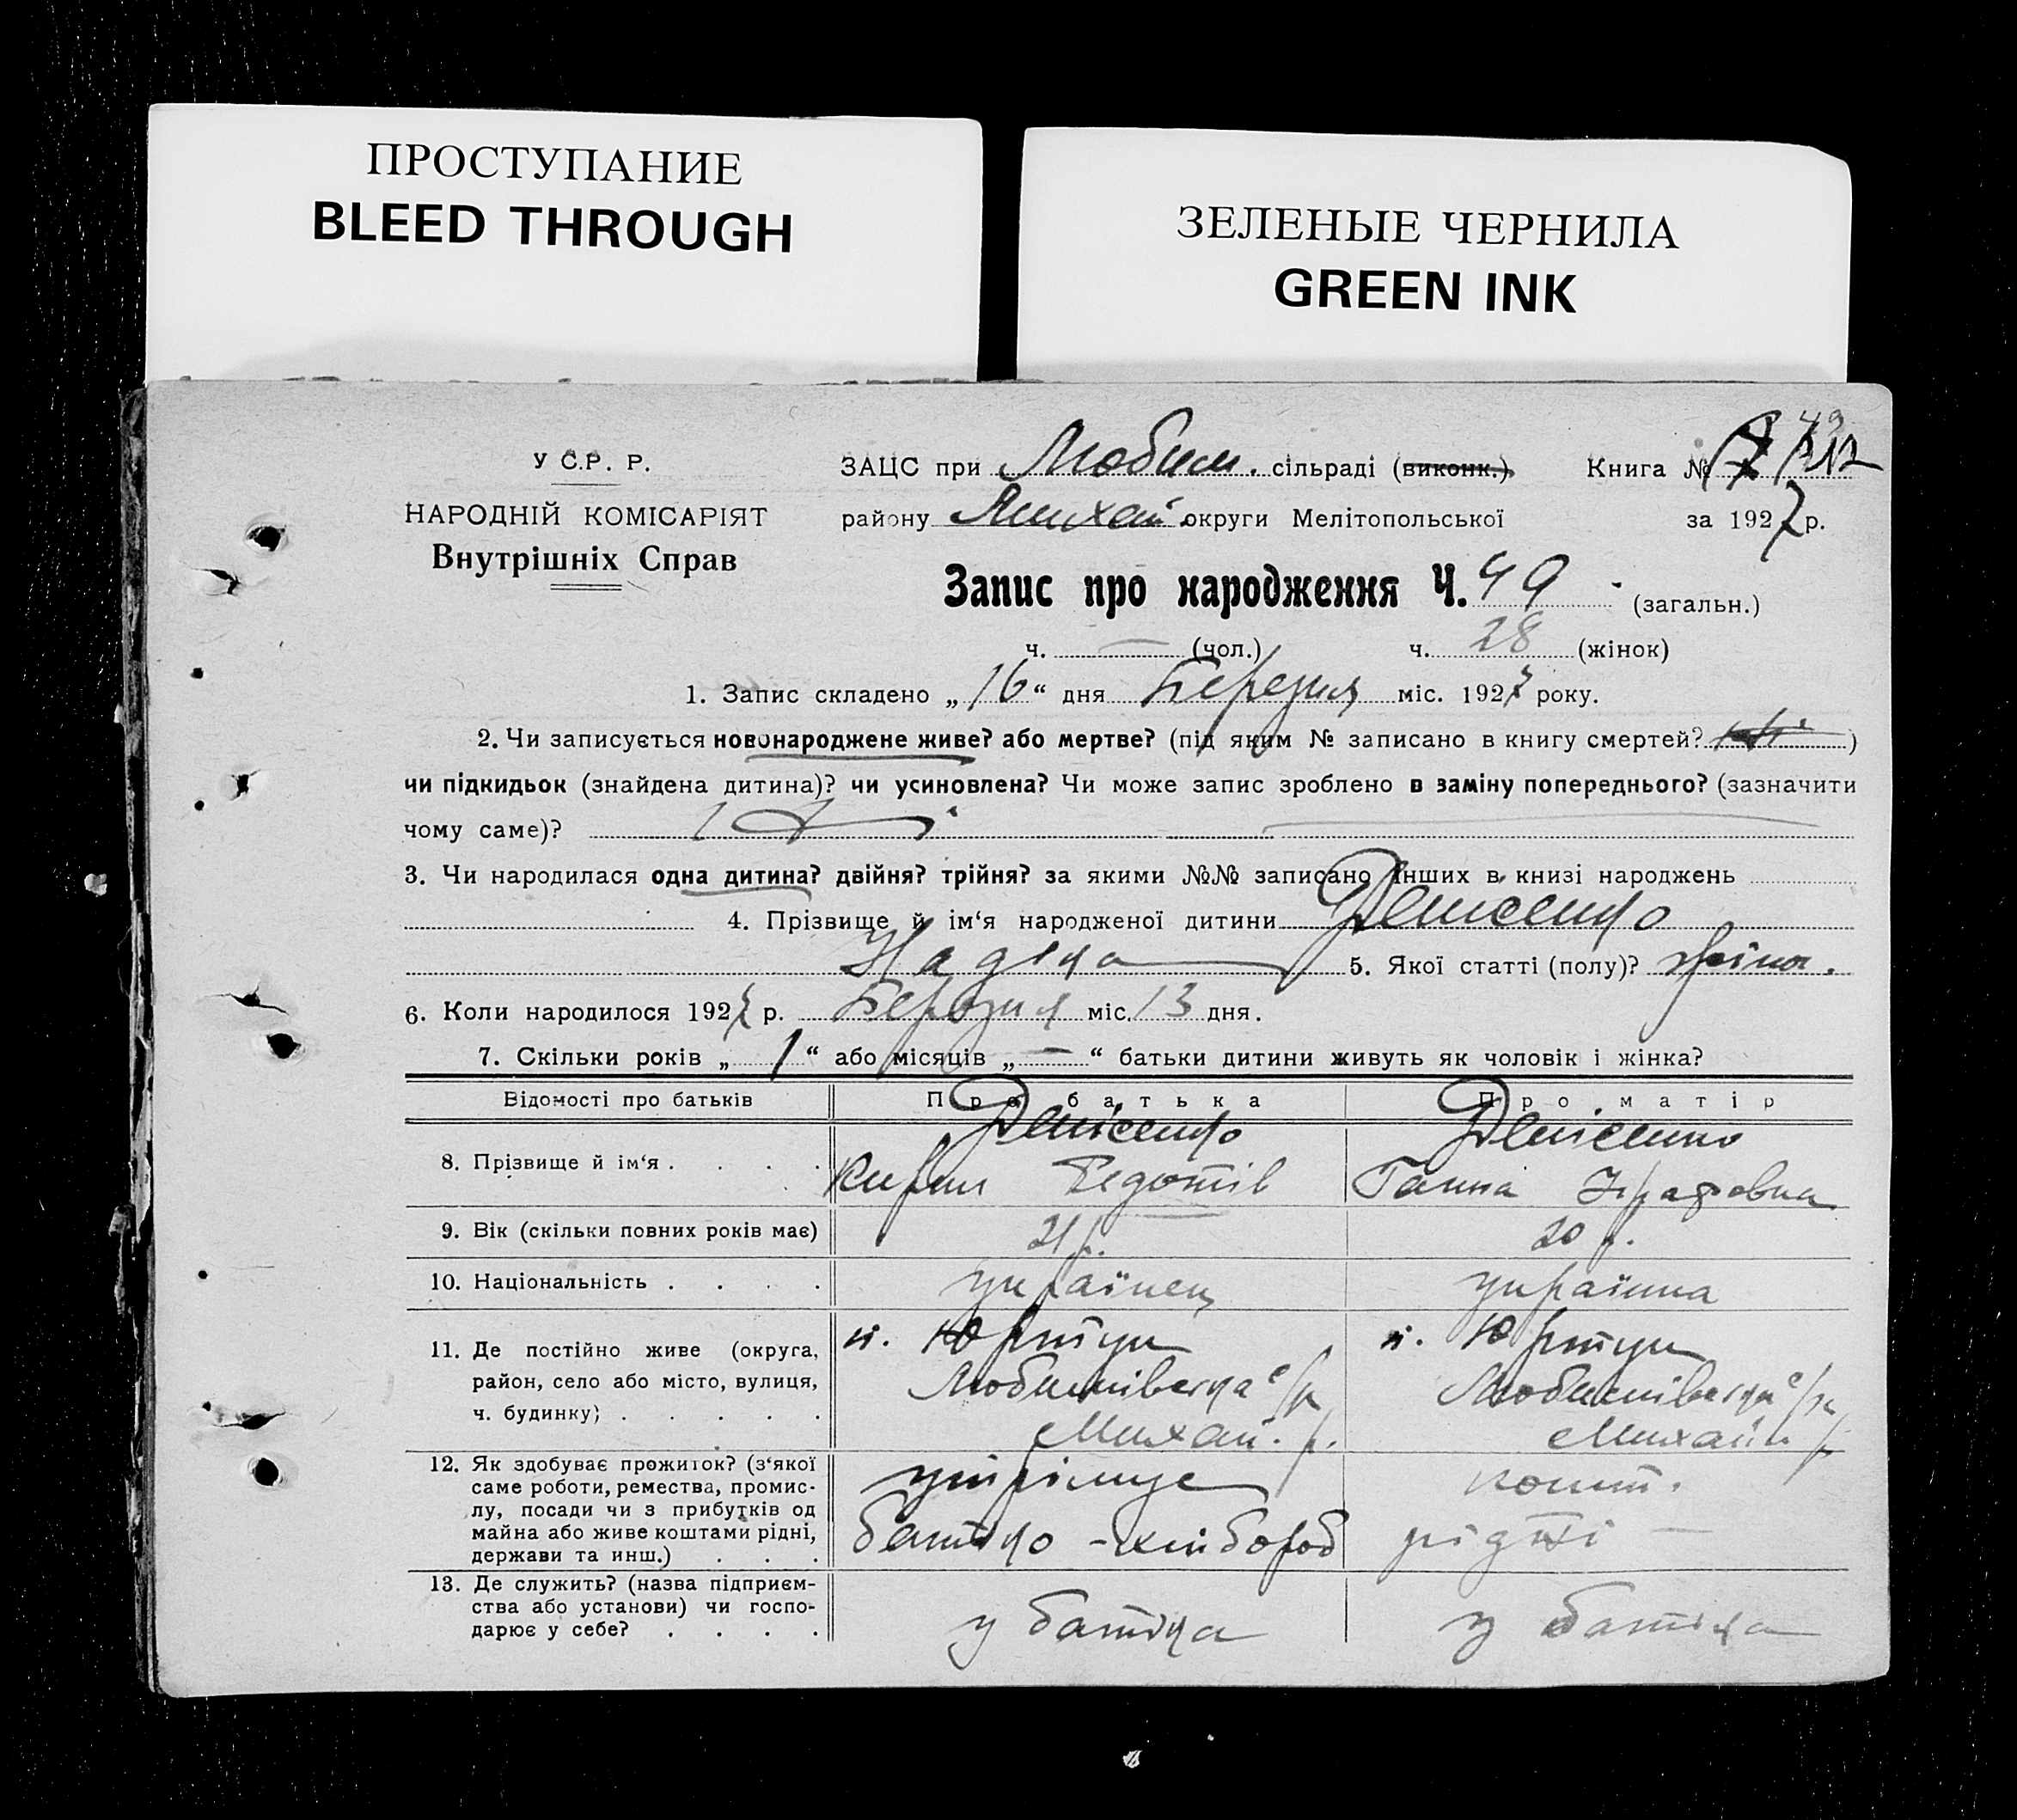 ПРОСТУПАНИЕ
BLEED THROUGH
ЗЕЛЕНЫЕ ЧЕРНИЛА
GREEN INK
У С.Р. Р.
НАРОДНІЙ КОМІСАРІЯТ
Внутрішніх Справ
49
ЗАЦС при Любим. сільраді (виконк.) Книга №
району Михай округи Мелітопольської за 1927 р.
Запис про народження Ч. 49 (загальн.)
ч. — (чол.) ч. 28 (жінок)
1. Запис складено „16“ дня Березня міс. 1927 року.
2. Чи записується новонароджене живе? або мертве? (під яким № записано в книгу смертей? )
чи підкидьок (знайдена дитина)? чи усиновлена? Чи може запис зроблено в заміну попереднього? (зазначити
чому саме)?
3. Чи народилася одна дитина? двійня? трійня? за якими №№ записано інших в книзі народжень
4. Прізвище й ім‘я народженої дитини Денісенко
Надія 5. Якої статті (полу)? жіноч.
6. Коли народилося 1927 р. Березня міс. 13 дня.
7. Скільки років „1“ або місяців „—“ батьки дитини живуть як чоловік і жінка?
Відомості про батьків Про батька Про матір
8. Прізвище й ім‘я . . . .
Денісенко
Кирил Федотів
Денісенко
Ганна
9. Вік (скільки повних років має) 21 р. 20 р.
10. Національність . . . . українец українка
11. Де постійно живе (округа,
район, село або місто, вулиця,
ч. будинку) . . . . .
Любимівська с/р
Михай. р.
Любимівська с/р
Михай. р.
12. Як здобуває прожиток? (з‘якої
саме роботи, ремества, промис-
лу, посади чи з прибутків од
майна або живе коштами рідні,
держави та инш.) . . .
утрімує
батько - хлібороб
кошт.
рідні —
13. Де служить? (назва підприєм-
ства або установи) чи госпо-
дарює у себе? . . . .
у батька
у батька